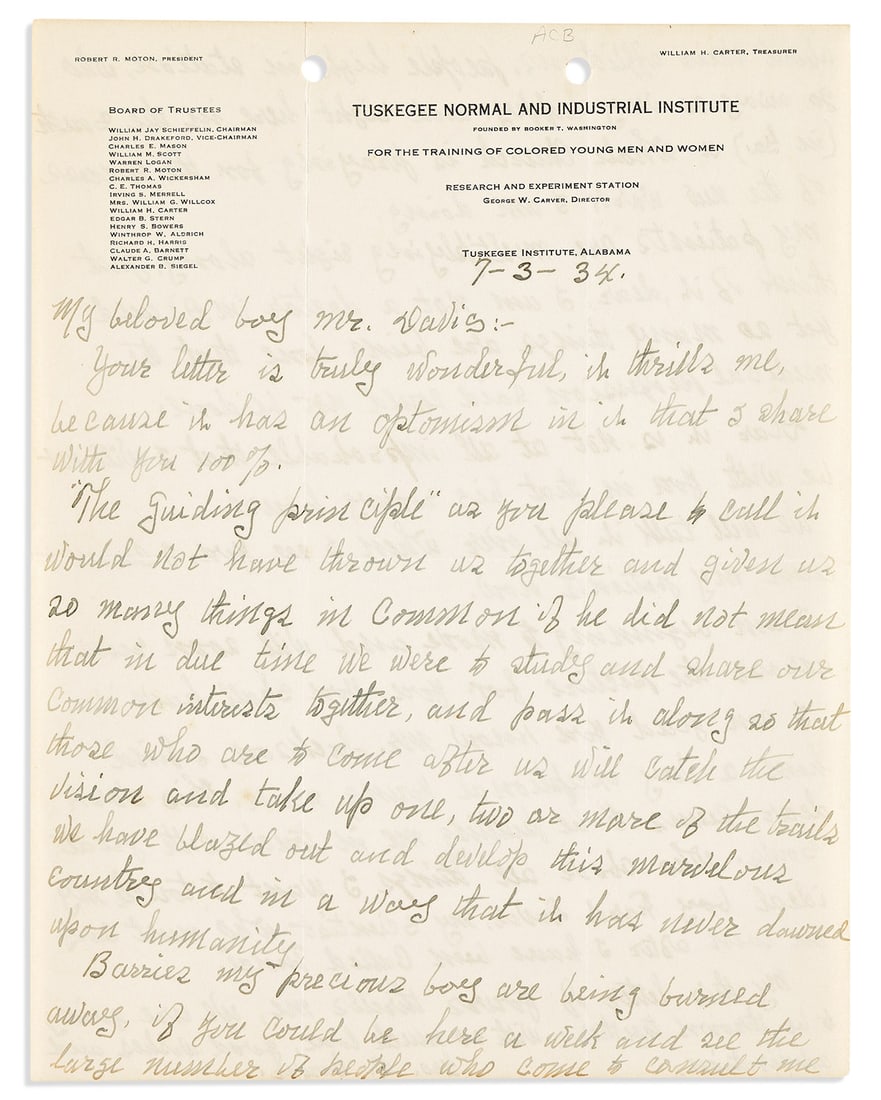 ACB
ROBERT R. MOTON, PRESIDENT
WILLIAM H. CARTER, TREASURER
BOARD OF TRUSTEES
WILLIAM JAY SCHIEFFELIN, CHAIRMAN
JOHN H. DRAKEFORD, VICE-CHAIRMAN
CHARLES E. MASON
WILLIAM M. SCOTT
WARREN LOGAN
ROBERT R. MOTON
CHARLES A. WICKERSHAM
C. E. THOMAS
IRVING S. MERRELL
MRS. WILLIAM G. WILLCOX
WILLIAM H. CARTER
EDGAR B. STERN
HENRY S. BOWERS
WINTHROP W. ALDRICH
RICHARD H. HARRIS
CLAUDE A. BARNETT
WALTER G. CRUMP
ALEXANDER B. SIEGEL
TUSKEGEE NORMAL AND INDUSTRIAL INSTITUTE
FOUNDED BY BOOKER T. WASHINGTON
FOR THE TRAINING OF COLORED YOUNG MEN AND WOMEN
RESEARCH AND EXPERIMENT STATION
GEORGE W. CARVER, DIRECTOR
TUSKEGEE INSTITUTE, ALABAMA
7-3-34.
My beloved boy Mr. Davis:-
Your letter is truly wonderful, it thrills me,
because it has an optomism in it that I share
with you 100%.
"The Guiding principle" as you please to call it
would not have thrown us together and given us
so many things in Common if he did not mean
that in due time we were to study and share our
Common interests together, and pass it along so that
those who are to come after us will catch the
vision and take up one, two or more of the trails
we have blazed out and develop this marvelous
country and in a way that it has never dawned
upon humanity
Barries my precious boy are being burned
away, if you could be here a week and see the
large number of people who come to consult me